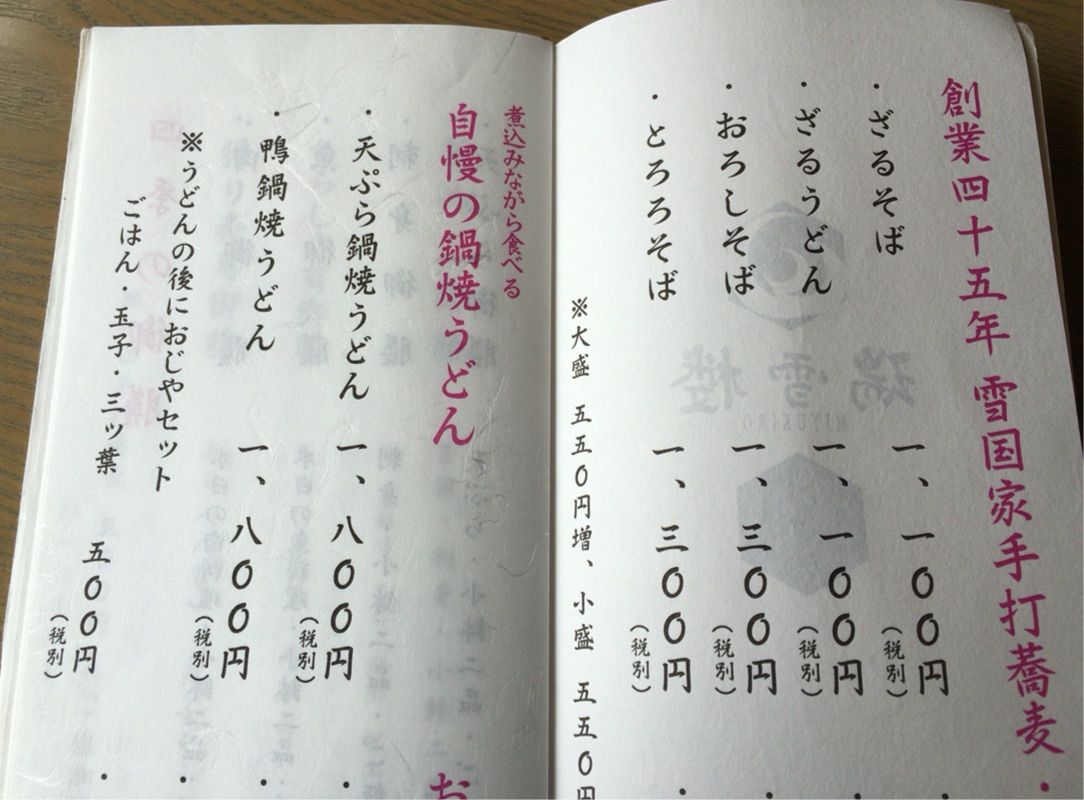 創業四十五年 雪国家手打蕎麦・
・ざるそば 一、一〇〇円(税別)
・ざるうどん 一、一〇〇円(税別)
・おろしそば 一、三〇〇円(税別)
・とろろそば 一、三〇〇円(税別)
※大盛 五五〇円増、小盛 五五〇円
煮込みながら食べる
自慢の鍋焼うどん
・天ぷら鍋焼うどん 一、八〇〇円(税別)
・鴨鍋焼うどん 一、八〇〇円(税別)
※うどんの後におじやセット
ごはん・玉子・三ッ葉 五〇〇円(税別)
お